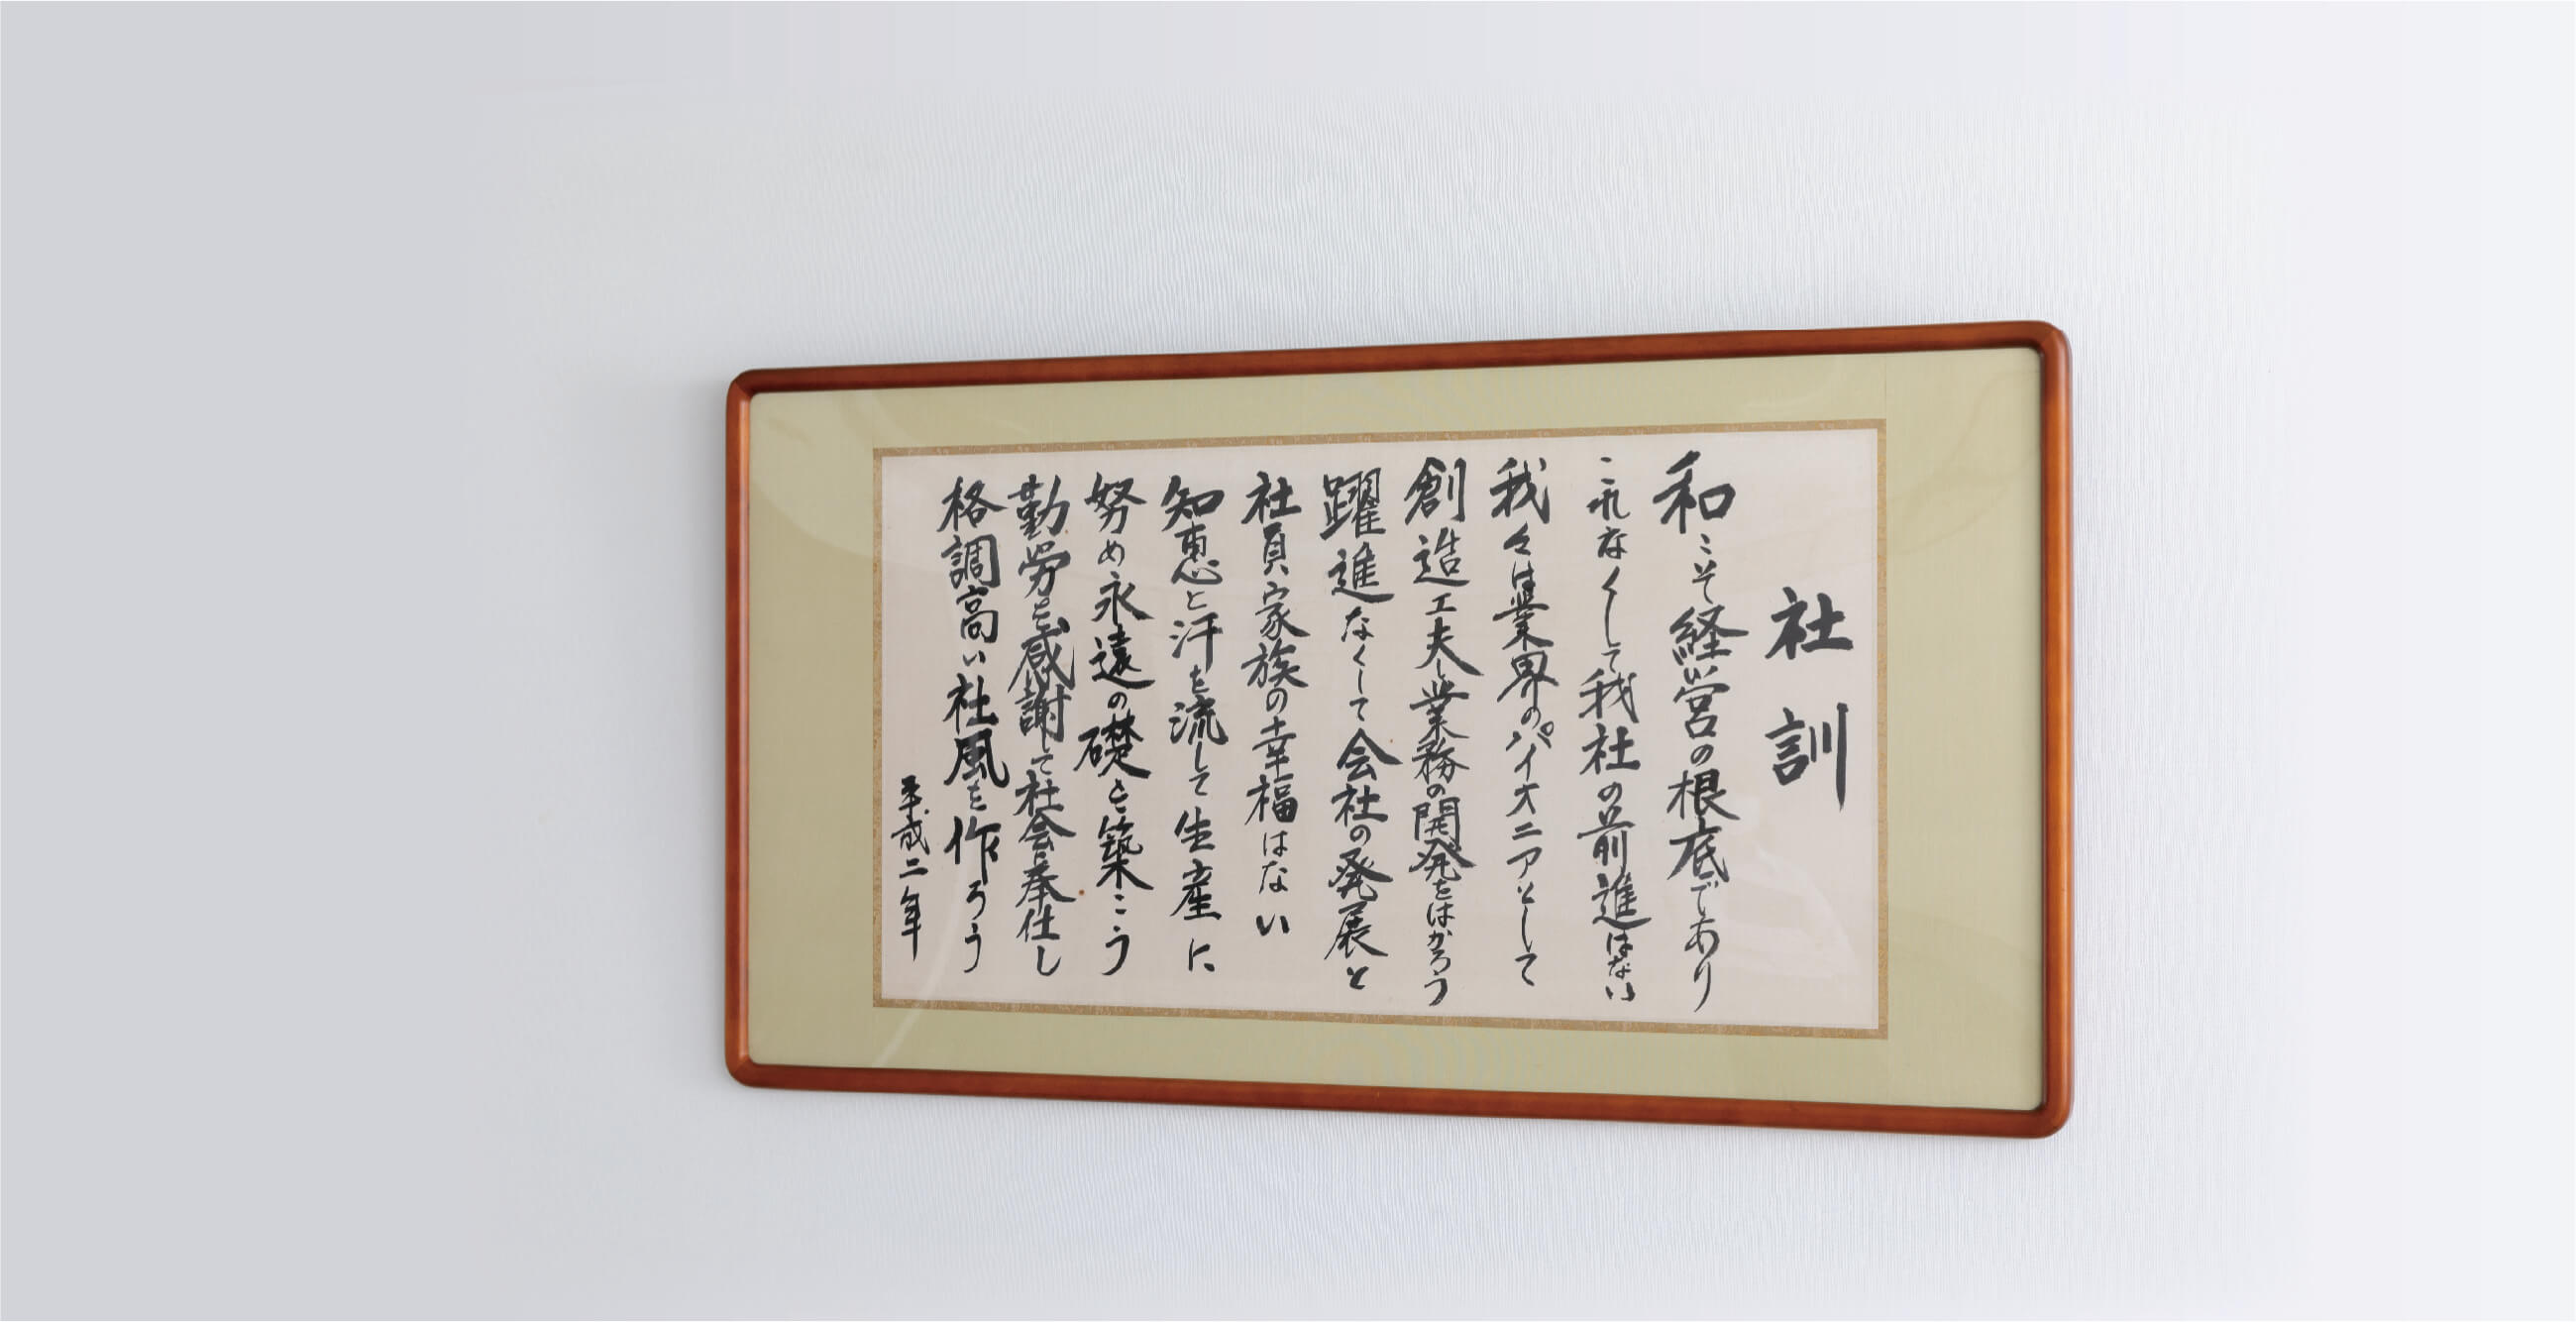 社訓
和こそ経営の根底であり
これなくして我社の前進はない
我々は業界のパイオニアとして
創造工夫し業務の開発をはかろう
躍進なくして会社の発展と
社員家族の幸福はない
知恵と汗を流して生産に
努め永遠の礎を築こう
勤労を感謝して社会に奉仕し
格調高い社風を作ろう
平成二年